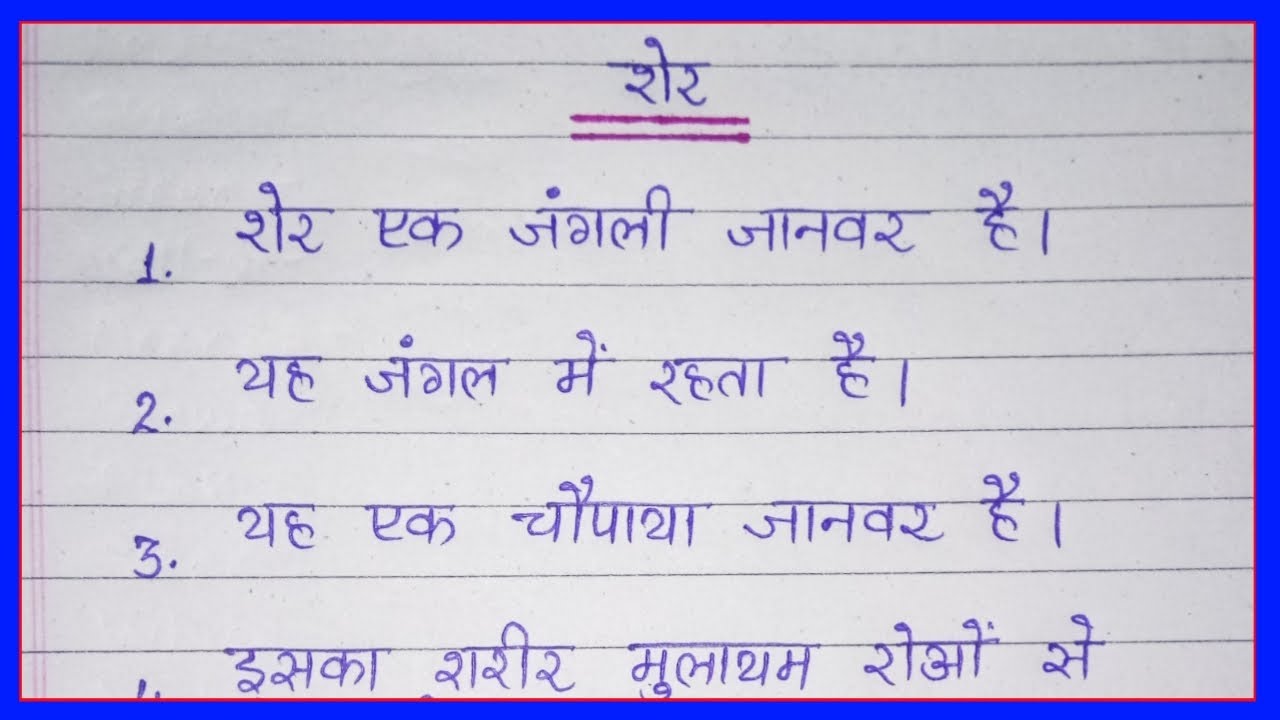 शेर
1. शेर एक जंगली जानवर है।
2. यह जंगल में रहता है।
3. यह एक चौपाया जानवर है।
4. इसका शरीर मुलायम रोओं से